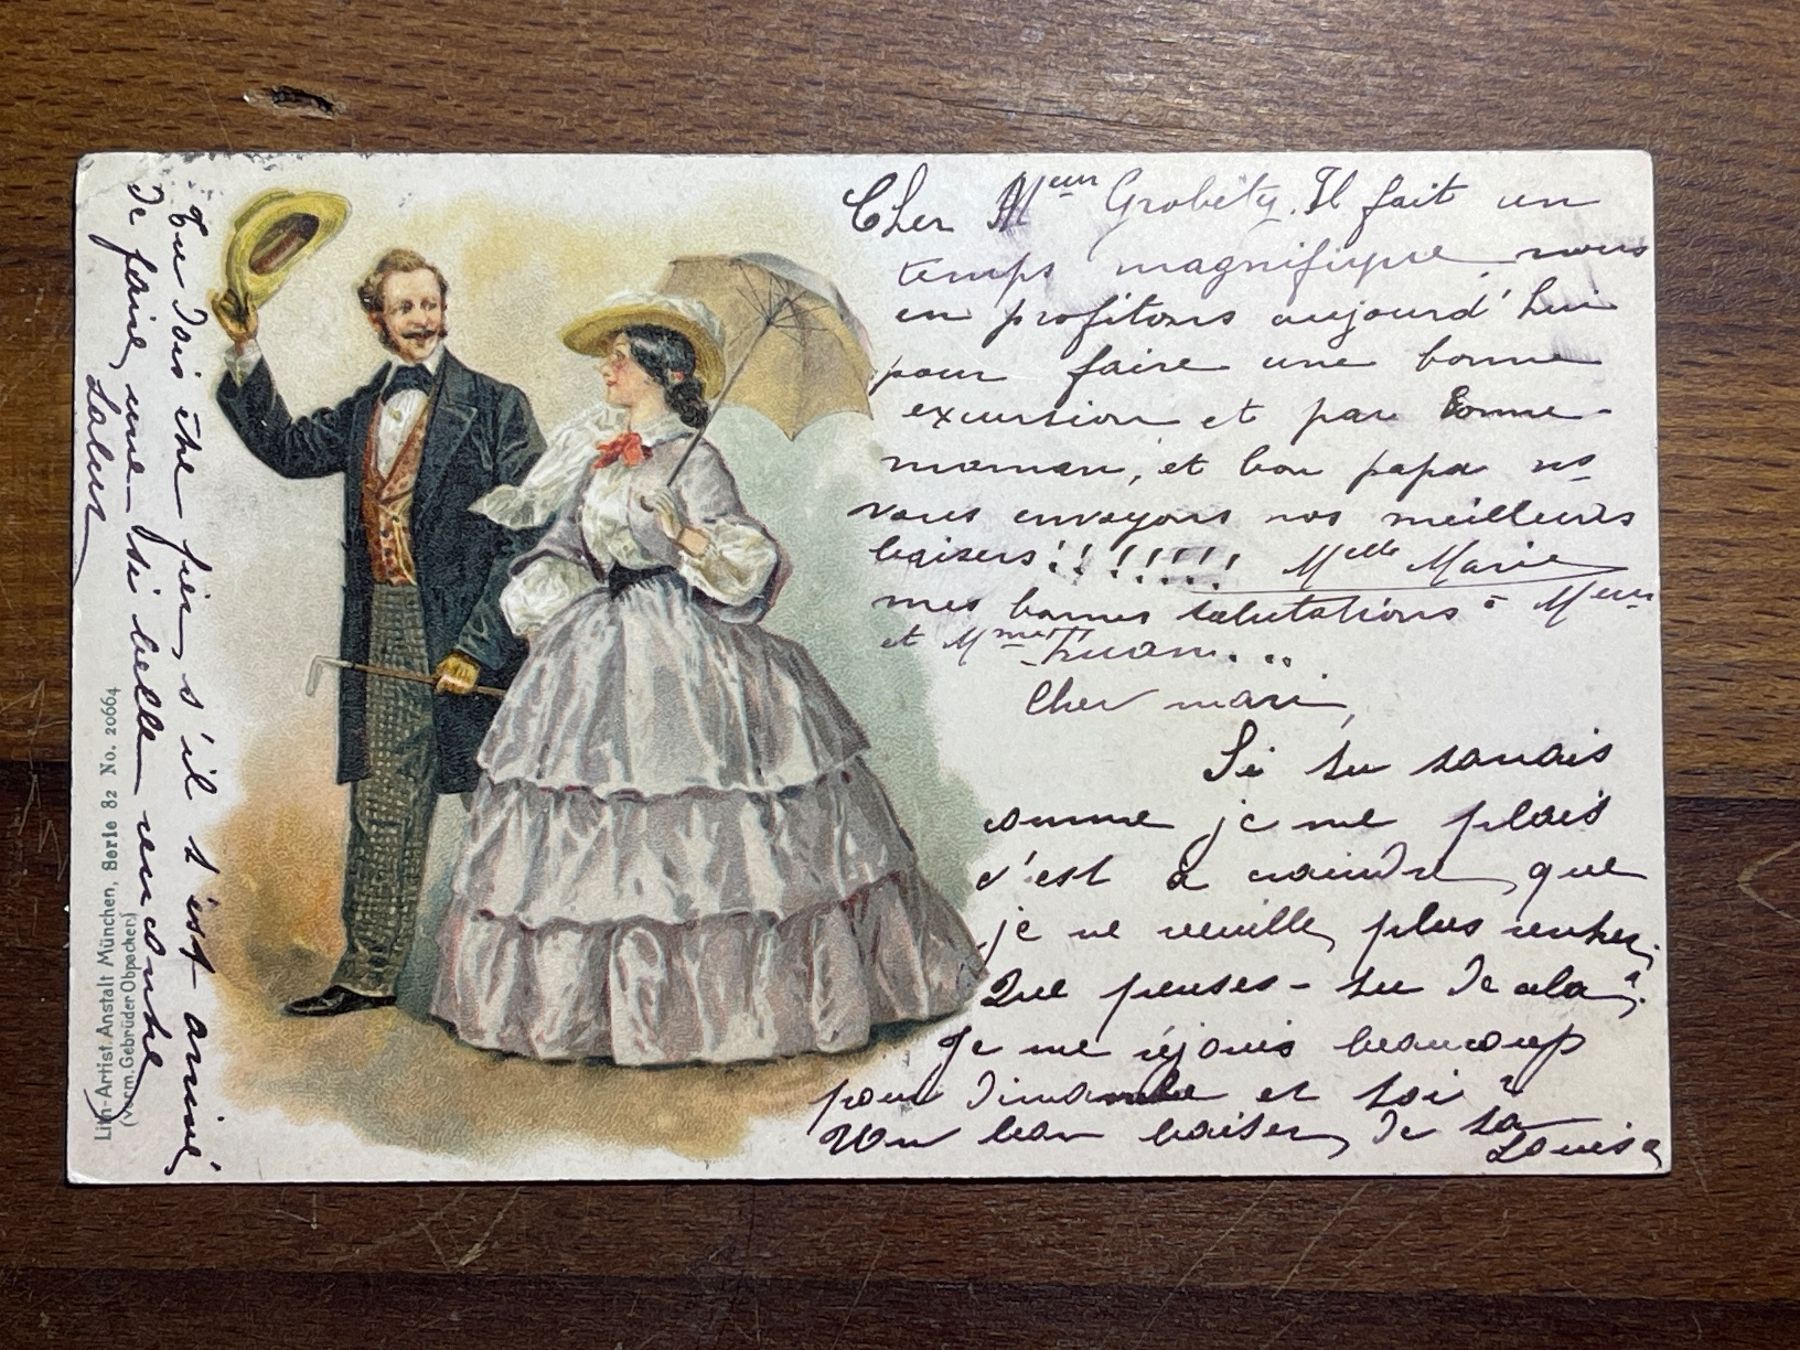 Cher Meur Grobéty. Il fait un
temps magnifique nous
en profitons aujourd'hui
pour faire une bonne
excursion et par bonne-
maman, et bon papa ns
vous envoyons nos meilleurs
baisers!!!!!!! Melle Marie
mes bonnes salutations à Meur
et Mme
Cher mari,
Si tu savais
comme je me plais
c'est à craindre que
je ne veuille plus rentrer,
Que penses-tu de cela?
Je me réjouis beaucoup
pour dimanche et toi?
Un bon baiser de ta
Louisa
Tu dois être fier s'il t'est arrivé
de faire une si belle rencontre
Lith-Artist. Anstalt München, Serie 82 No. 20664
(vorm. Gebrüder Obpacher)